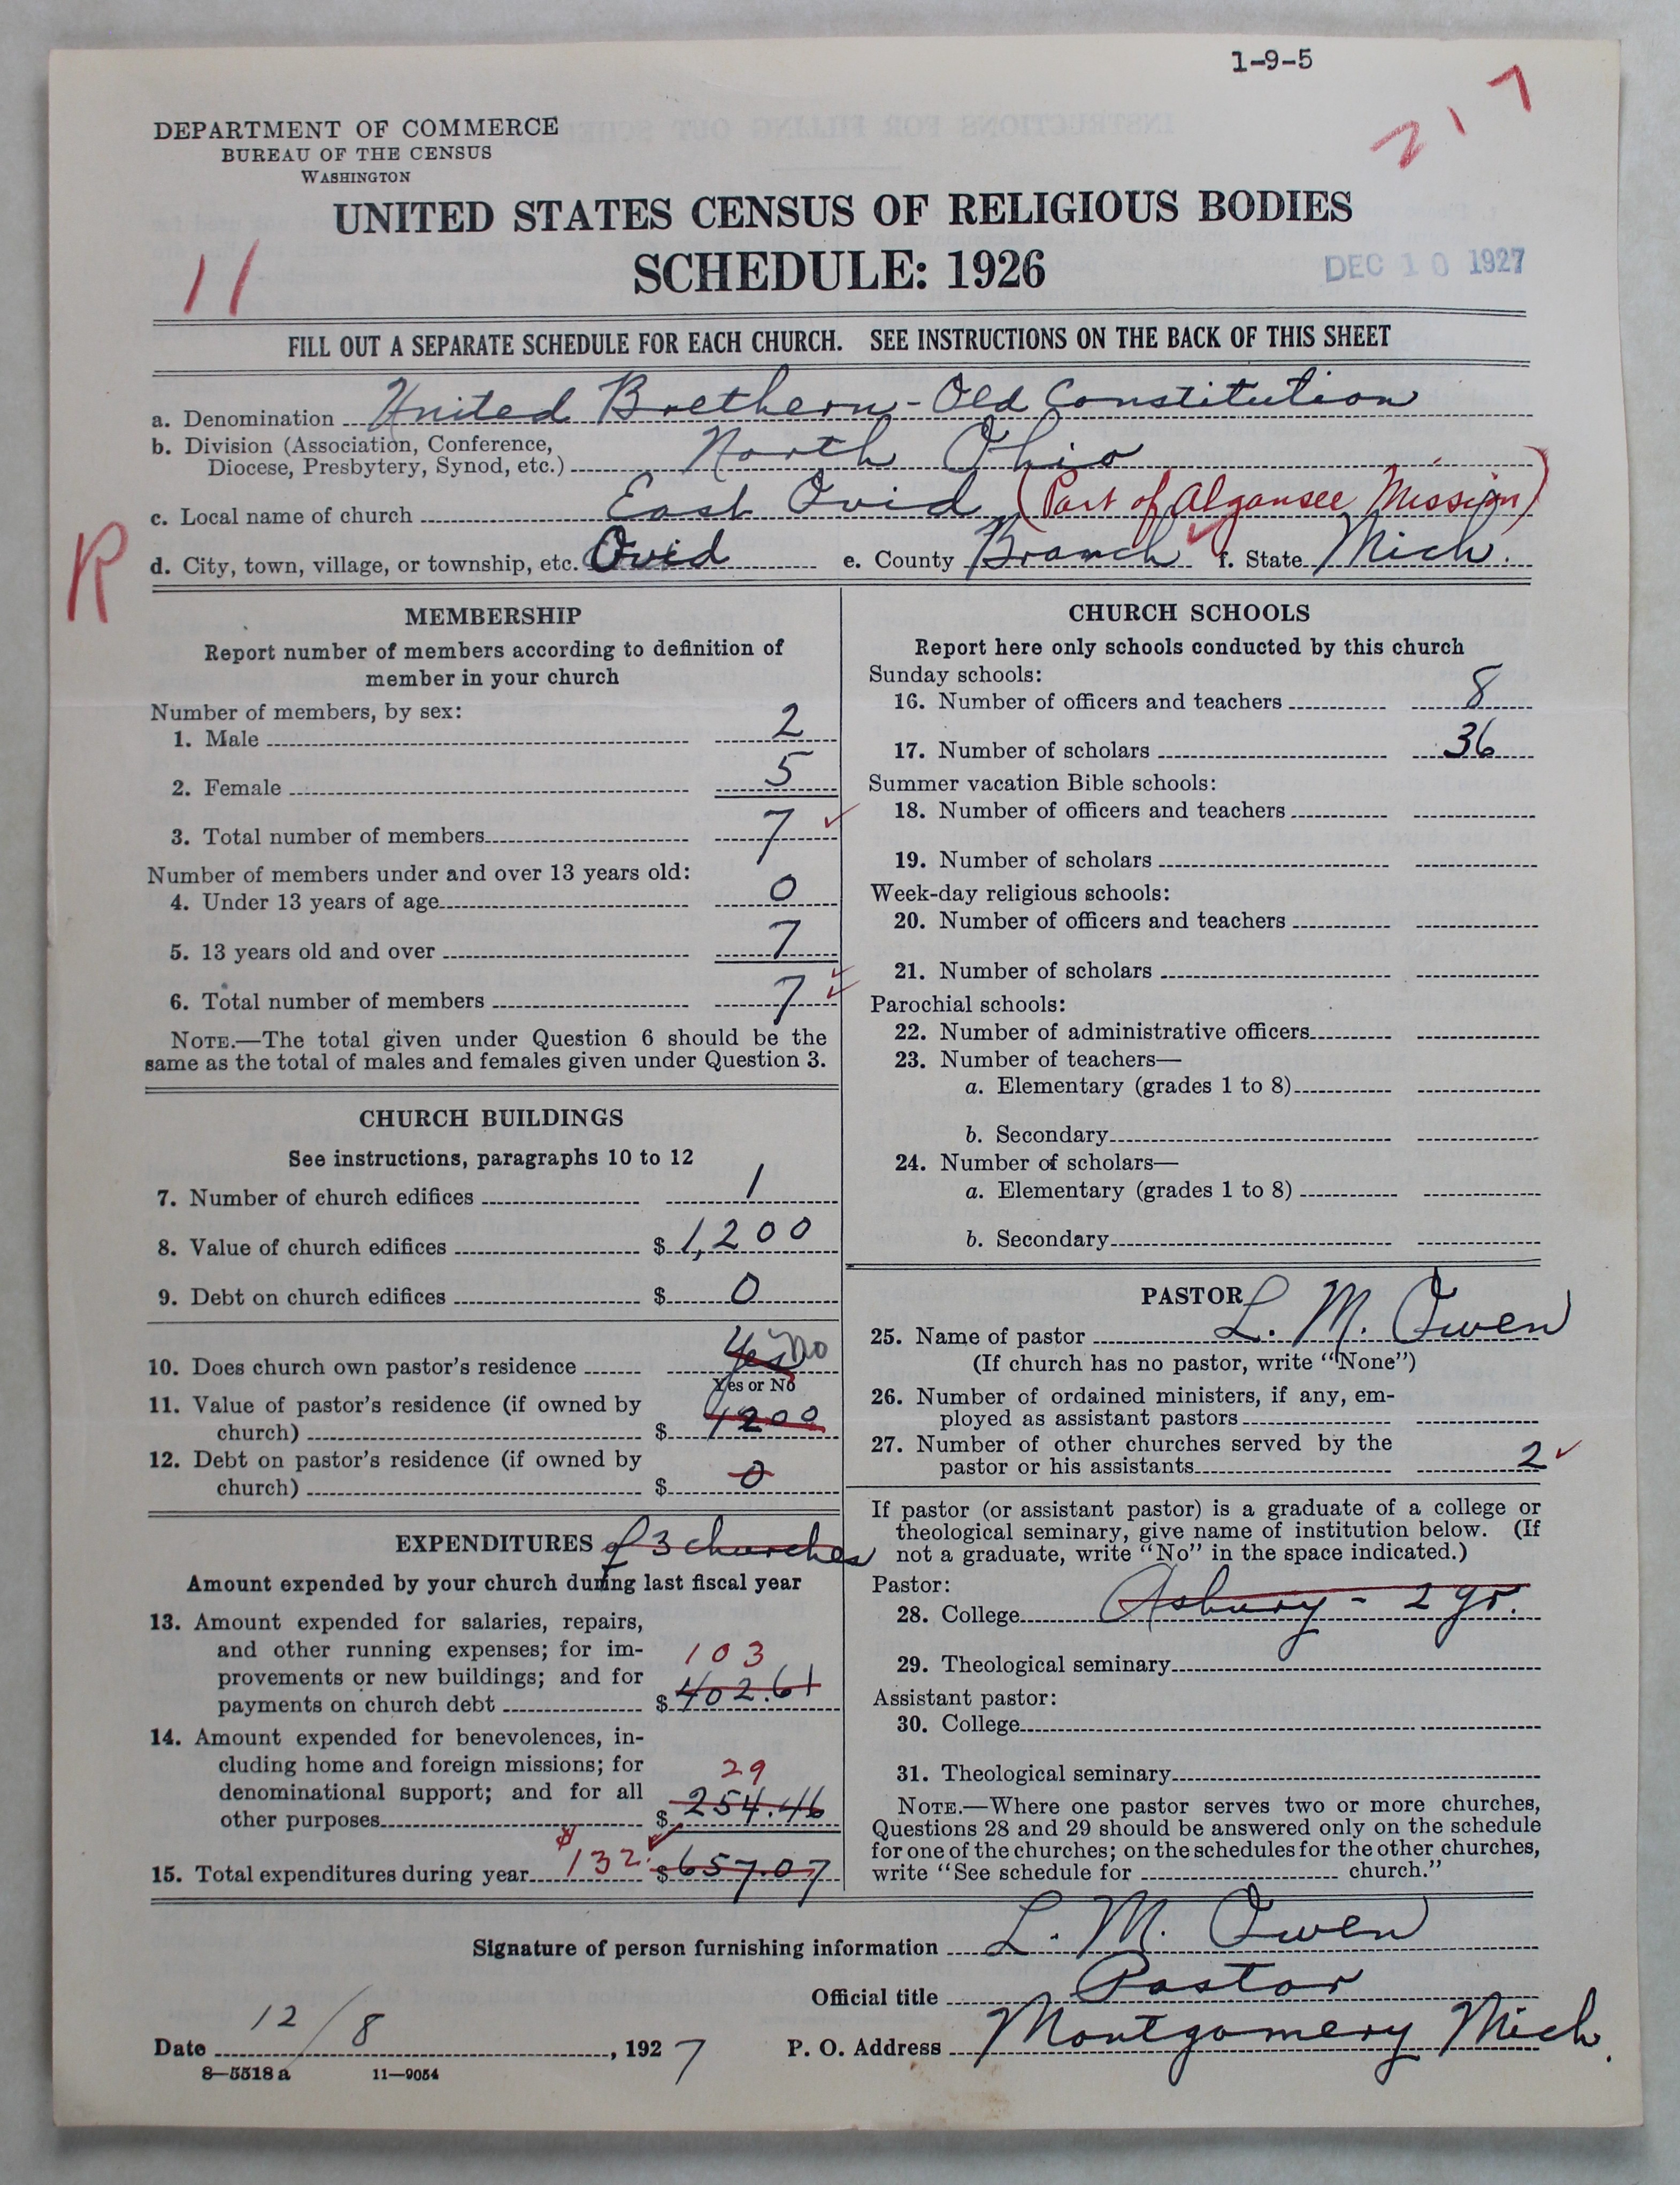 1-9-5
217
DEPARTMENT OF COMMERCE
BUREAU OF THE CENSUS
WASHINGTON
UNITED STATES CENSUS OF RELIGIOUS BODIES
SCHEDULE: 1926
11
DEC 10 1927
FILL OUT A SEPARATE SCHEDULE FOR EACH CHURCH. SEE INSTRUCTIONS ON THE BACK OF THIS SHEET
a. Denomination United Brethern - Old Constitution
b. Division (Association, Conference,
Diocese, Presbytery, Synod, etc.) North Ohio
c. Local name of church East Ovid (Part of Algansee Mission)
R
d. City, town, village, or township, etc. Ovid e. County Branch f. State Mich.
MEMBERSHIP
Report number of members according to definition of
member in your church
Number of members, by sex:
1. Male 2
2. Female 5
3. Total number of members 7
Number of members under and over 13 years old:
4. Under 13 years of age 0
5. 13 years old and over 7
6. Total number of members 7
NOTE.—The total given under Question 6 should be the
same as the total of males and females given under Question 3.
CHURCH BUILDINGS
See instructions, paragraphs 10 to 12
7. Number of church edifices 1
8. Value of church edifices $ 1,200
9. Debt on church edifices $ 0
10. Does church own pastor's residence Yes No
Yes or No
11. Value of pastor's residence (if owned by
church) $ 1200
12. Debt on pastor's residence (if owned by
church) $ 0
EXPENDITURES of 3 churches
Amount expended by your church during last fiscal year
13. Amount expended for salaries, repairs,
and other running expenses; for im-
provements or new buildings; and for 103
payments on church debt $ 402.61
14. Amount expended for benevolences, in-
cluding home and foreign missions; for 29
denominational support; and for all
other purposes $ 254.46
15. Total expenditures during year $132. $ 657.07
CHURCH SCHOOLS
Report here only schools conducted by this church
Sunday schools:
16. Number of officers and teachers 8
17. Number of scholars 36
Summer vacation Bible schools:
18. Number of officers and teachers
19. Number of scholars
Week-day religious schools:
20. Number of officers and teachers
21. Number of scholars
Parochial schools:
22. Number of administrative officers
23. Number of teachers—
a. Elementary (grades 1 to 8)
b. Secondary
24. Number of scholars—
a. Elementary (grades 1 to 8)
b. Secondary
PASTOR
25. Name of pastor L. M. Owen
(If church has no pastor, write "None")
26. Number of ordained ministers, if any, em-
ployed as assistant pastors
27. Number of other churches served by the
pastor or his assistants 2
If pastor (or assistant pastor) is a graduate of a college or
theological seminary, give name of institution below. (If
not a graduate, write "No" in the space indicated.)
Pastor:
28. College Asbury - 2 yr.
29. Theological seminary
Assistant pastor:
30. College
31. Theological seminary
NOTE.—Where one pastor serves two or more churches,
Questions 28 and 29 should be answered only on the schedule
for one of the churches; on the schedules for the other churches,
write "See schedule for church."
Signature of person furnishing information L. M. Owen
Official title Pastor
Date 12/8, 1927 P. O. Address Montgomery Mich.
8—5518 a 11—9054